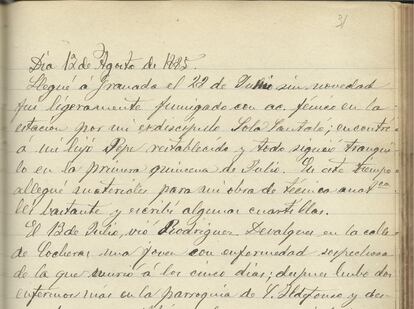 31
Dia 12 de Agosto de 1885.
Llegué á Granada el 22 de Junio sin novedad
fuí ligeramente fumigado con ac. fénico en la
estacion por mi condiscípulo Solá Santaló; encontré
á mi hijo Pepe restablecido y todo siguió tranqui-
lo en la primera quincena de Julio. En este tiempo
allegué materiales para mi obra de técnica anat.
leí bastante y escribí algunas cuartillas.
El 13 de Julio, vió Rodriguez Devalque en la calle
de Cocheras una joven con enfermedad sospechosa
de la que murió á los cinco dias; despues hubo dos
enfermos mas en la parroquia de S. Ildefonso y